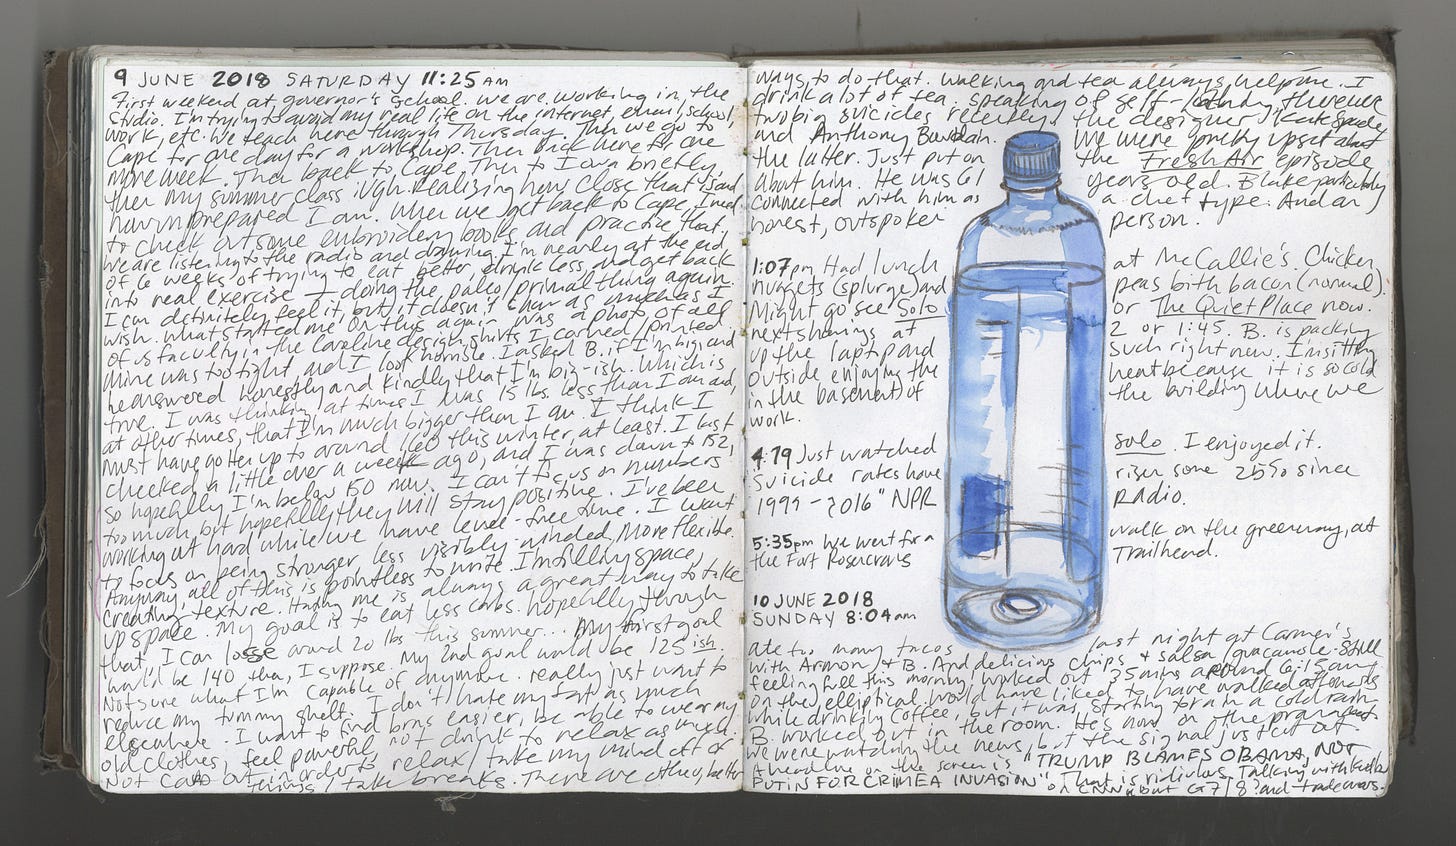 9 JUNE 2018 SATURDAY 11:25 AM
First weekend at governor's school. We are working in the
studio. I'm trying to avoid my real life on the internet, email, school,
work, etc. We teach here through Thursday. Then we go to
Cape for one day for a workshop. Then back here for one
more week. Then back to Cape. Then to Iowa briefly,
then my summer class. Ugh. Realizing how close that is and
how unprepared I am. When we get back to Cape, I need
to check out some embroidery books and practice that.
We are listening to the radio and drawing. I'm nearly at the end
of 6 weeks of trying to eat better, drink less, and get back
into real exercise — doing the paleo/primal thing again.
I can definitely feel it, but it doesn't show as much as I
wish. What started me on this again was a photo of all
of us faculty in the Caroline design shirts I carved/printed.
Mine was too tight, and I look horrible. I asked B. if I'm big, and
he answered honestly and kindly that I'm big-ish. Which is
true. I was thinking, at times I was 15 lbs less than I am and,
at other times, that I'm much bigger than I am. I think I
must have gotten up to around 160 this winter, at least. I last
checked a little over a week ago, and I was down to 152,
so hopefully I'm below 150 now. I can't focus on numbers
too much, but hopefully they will stay positive. I've been
working out hard while we have free time. I want
to focus on being stronger, less visibly winded, more flexible.
Anyway all of this is pointless to write. I'm filling space,
creating texture. Hating me is always a great way to take
up space. My goal is to eat less carbs. Hopefully through
that, I can lose around 20 lbs this summer... My first goal
would be 140 then, I suppose. My 2nd goal would be 125 ish.
Not sure what I'm capable of anymore. really just want to
reduce my tummy shelf. I don't hate my fat as much
elsewhere. I want to find bras easier, be able to wear my
old clothes, feel powerful, not drink to relax as much.
Not out in order to relax/take my mind off of
things/take breaks. There are other, better
ways to do that. Walking and tea always help me. I
drink a lot of tea. Speaking of self-, there were
two big suicides recently, the designer, Kate Spade,
and Anthony Bourdain. We were pretty upset about
the latter. Just put on the Fresh Air episode
about him. He was 61 years old. Blake particularly
connected with him as a chef type. And an
honest, outspoken person.
1:07pm Had lunch at McCallie's. Chicken
nuggets (splurge) and peas with bacon (normal).
Might go see Solo or The Quiet Place now.
next showings at 2 or 1:45. B. is packing
up the laptop and such right now. I'm sitting
outside enjoying the heat because it is so cold
in the basement of the building where we
work.
4:19 Just watched Solo. I enjoyed it.
"Suicide rates have risen some 25% since
1999-2016" NPR Radio.
5:35pm We went for a walk on the greenway, at
the Fort Rosecrans Trailhead.
10 JUNE 2018
SUNDAY 8:04 am
ate too many tacos last night at Carmen's
with Armon & B. And delicious chips & salsa/guacamole. Still
feeling full this morning. Worked out 35 mins around 6:15 am
on the elliptical. Would have liked to have walked afterwards
while drinking coffee, but it was starting to rain a cold rain.
B. worked out in the room. He's now on the
We were watching the news, but the signal just went out.
A headline on the screen is "TRUMP BLAMES OBAMA, NOT
PUTIN FOR CRIMEA INVASION". That is ridiculous. Talking with
on CNN about G7/8 and trade wars.